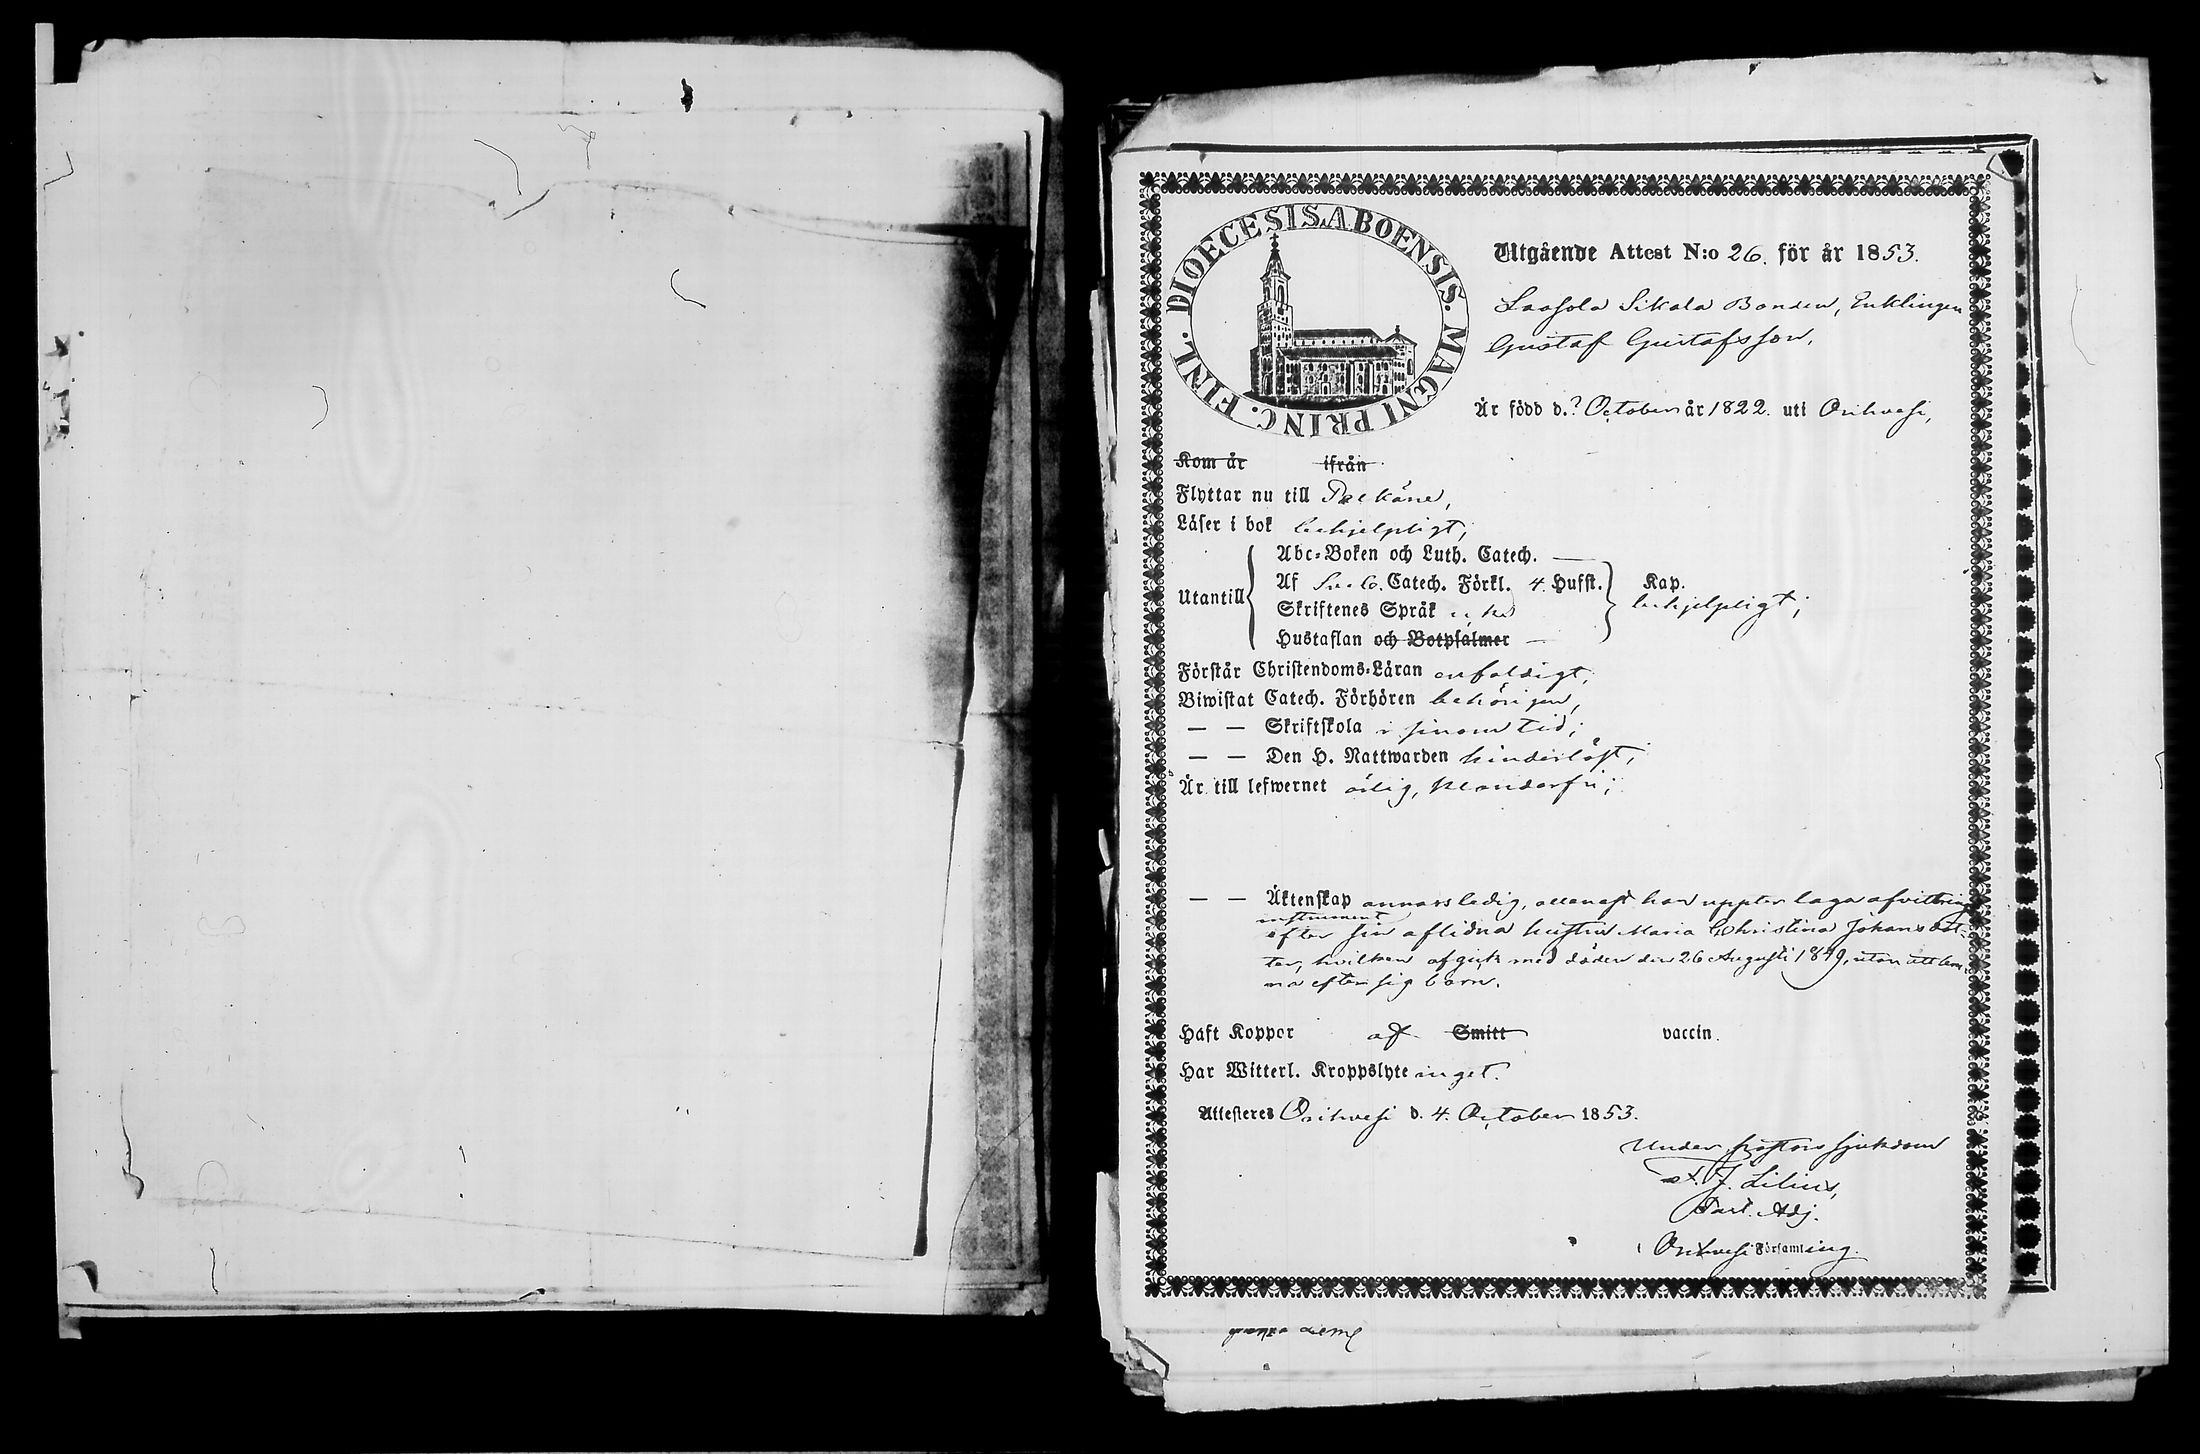 DIOECESIS ABOENSIS. MAGNI PRINC. FINL.
Utgående Attest N:o 26. för år 1853.
Sikala Bonden, Enklingen
Gustaf Gustafsson,
Är född d. ? October år 1822. uti Orihvesi,
Kom år ifrån
Flyttar nu till Pelkäne,
Läser i bok behjelpligt,
Abc-Boken och Luth. Catech. —
Af Catech. Förkl. 4. Hufst. Kap.
Utantill behjelpligt;
Skriftenes Språk
Hustaflan och Botpsalmer —
Förstår Christendoms-Läran enfaldigt,
Biwistat Catech. Förhören behörigen,
— — Skriftskola i sinom tid;
— — Den H. Nattwarden hinderlöst;
Är till lefwernet ärlig, klanderfri;
— — Äktenskap annars ledig, allenast han uppter laga afvittrings
instrument
efter sin aflidna hustru Maria Christina Johansdot-
ter, hvilken afgick med döden den 26 Augusti 1849, utan att lem-
na efter sig barn.
Haft Koppor af Smitt vaccin.
Har Witterl. Kroppslyte inget.
Attesteres Orihvesi d. 4. October 1853.
Under Pastors sjukdom
J. Lilius,
Past. Adj.
i Orihvesi Församling.